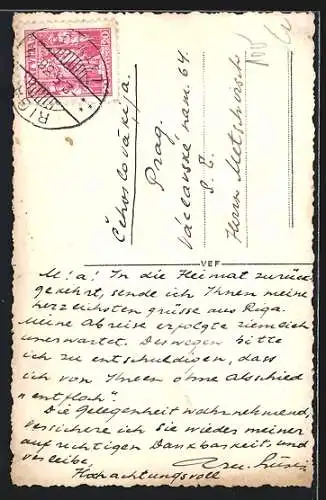 RIGA
LATVIJA
Čehoslovākija.
Prag.
Václavské nam. 64.
S. E.
Herrn Metscharsch
VEF
M! a! In die Heimat zurück
gekehrt, sende ich Ihnen meine
herzlichsten grüsse aus Riga.
Meine Abreise erfolgte ziemlich
unerwartet. Deswegen bitte
ich zu entschuldigen, dass
ich von Ihnen ohne Abschied
"entfloh".
Die Gelegenheit wahrnehmend,
versichere ich Sie wieder meiner
aufrichtigen Dankbarkeit und
verbleibe
Hochachtungsvoll